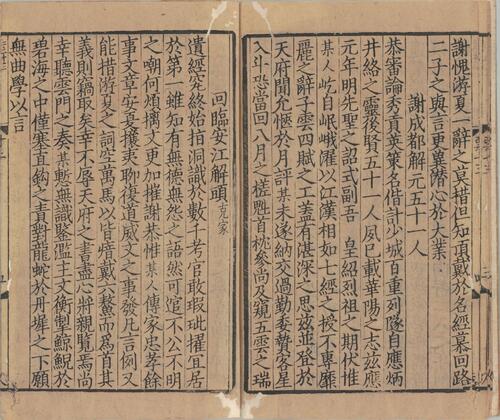 謝愧游夏一辭之莫措但知項戴於名經募回路
二子之與言更冀潛心於大業
謝成都解元五十一人
恭審論秀貢英策名偕計少城百重列隧自應炳
井絡之靈後賢五十一人夙已載華陽之志茲應
元年明先聖之詔式副吾 皇紹烈祖之期伏惟
某人屹自岷峨濯以江漢相如七經之授不專靡
麗之辭子雲四賦之工蓋有湛深之思茲並登於
天府聞允愜於月評某未遂納交過勤委贄客星
入斗恐當回八月之槎魁首桃矣尚及窺五雲之瑞
回臨安江解頭克家
遺經究終始拍洞識於數千考官敢瑕玼擢宜居
於第一雖知有無德無怨之語然可逭不公不明
之嘲何煩摛文更加摧謝恭惟某人傳家忠孝餘
事文章安夏攘夷聊復道威文之事發凡言例又
能措游夏之詞空萬馬以皆瘖戴六鼇而為首其
義則竊取矣幸不辱天府之書盡心將親覽焉尚
幸聽雲門之奏某慙無識鑒濫主文衡掣鯨鯢於
碧海之中僅塞直鈎之責對龍蛇於丹墀之下願
無曲學以言